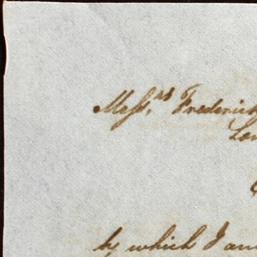 Mess.rs Frederick
by which I am